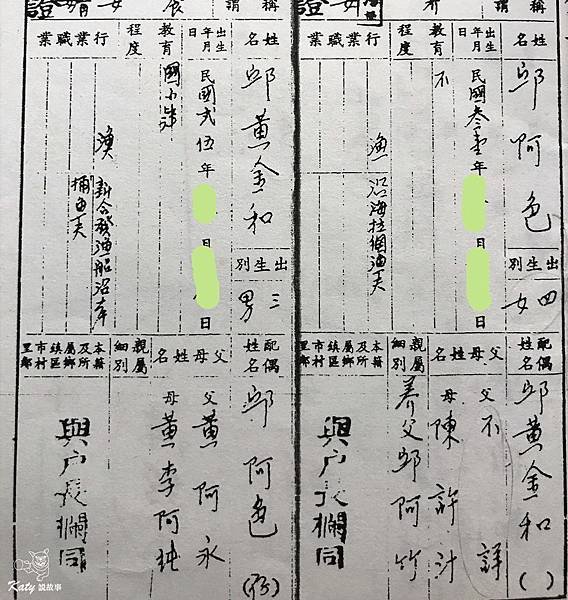 稱謂
姓名 邱阿色
出生別 四女
配偶姓名 邱黃金和( )
出生年月日 民國叁壹年 日
父母姓名 父不詳
母陳許汁
教育程度 不
親屬細別 養父邱阿竹
行業職業 漁
沿海拉網漁夫
本籍及所屬鄉鎮區市村里鄰 與戶長欄同
稱謂
姓名 邱黃金和
出生別 三男
配偶姓名 邱阿色
出生年月日 民國弍伍年 日 日
父母姓名 父黃阿永
母黃李阿純
教育程度 國小
親屬細別
行業職業 漁
新合發漁船沿岸
捕魚夫
本籍及所屬鄉鎮區市村里鄰 與戶長欄同
Katy 說故事